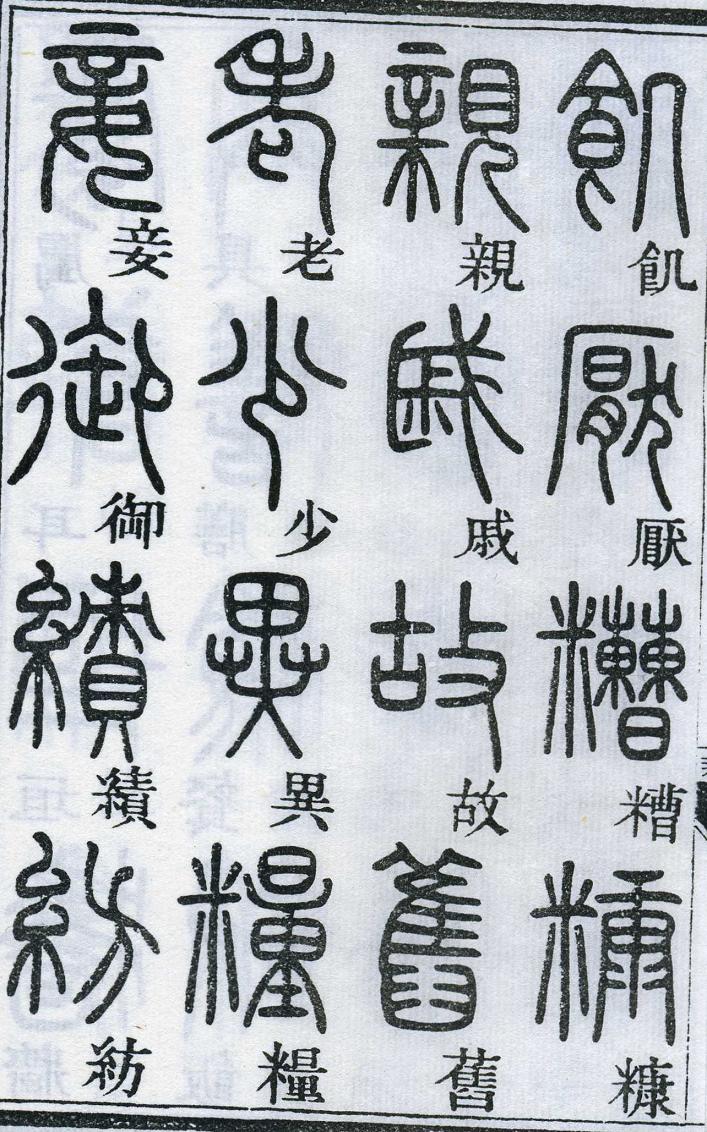 飢厭糟糠
親戚故舊
老少異糧
妾御績紡